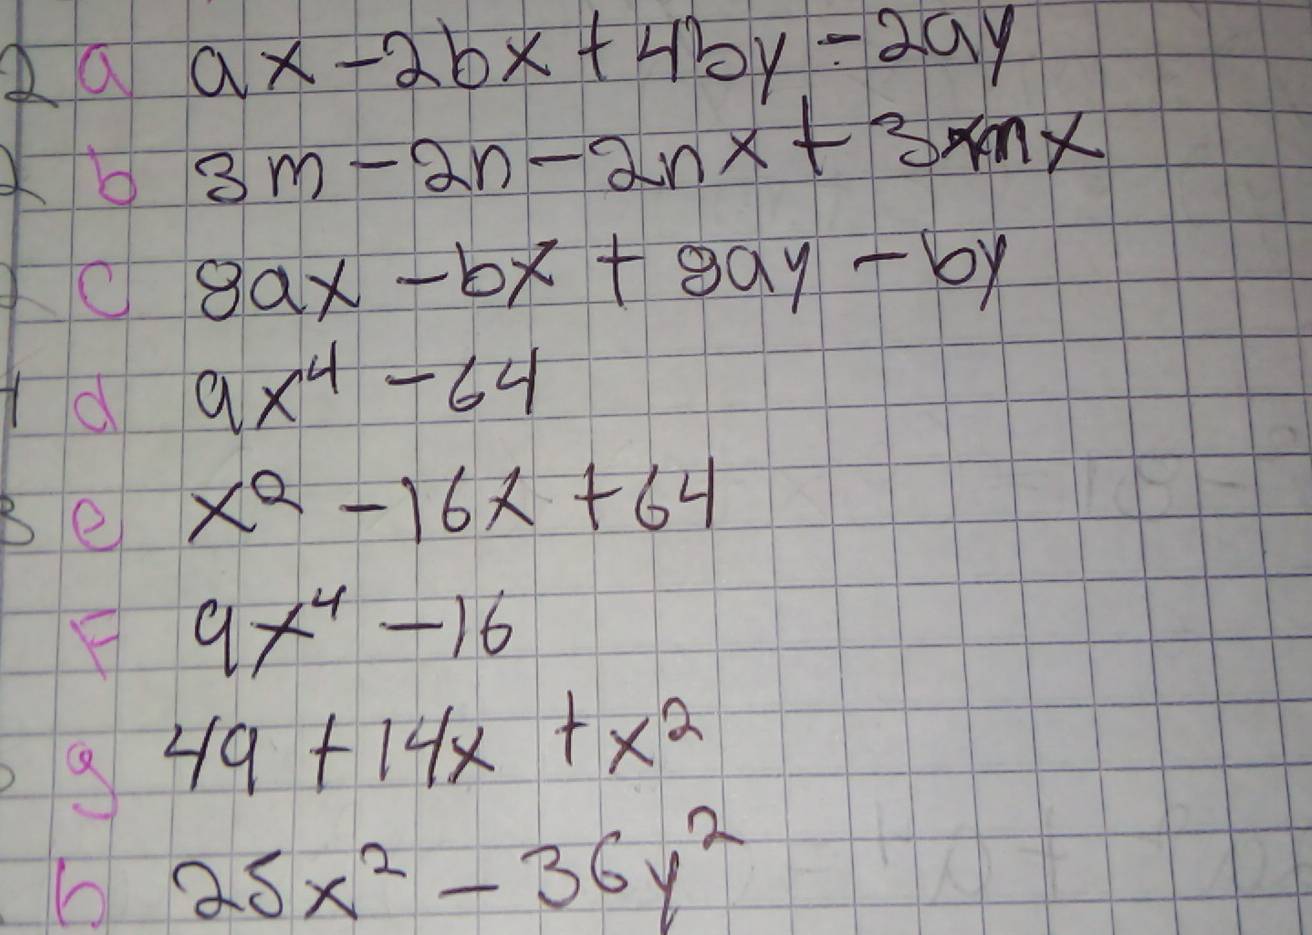 2 a ax - 2bx + 4by - 2ay
2 b 3m - 2n - 2nx + 3mx
c 8ax - bx + 8ay - by
d 9x⁴ - 64
e x² - 16x + 64
F 9x⁴ - 16
g 49 + 14x + x²
h 25x² - 36y²